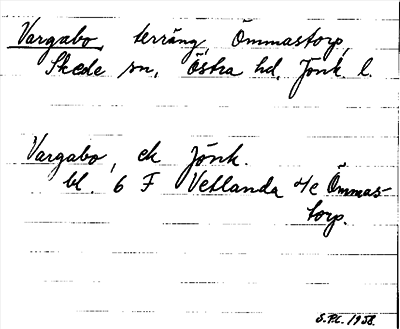 Vargabo, terräng, Ömmastorp,
Skede sn, Östra hd, Jönk. l.
Vargabo, ek Jönk.
bl. 6 F Vetlanda s/e Ömmas-
torp.
S.P.C. 1958.